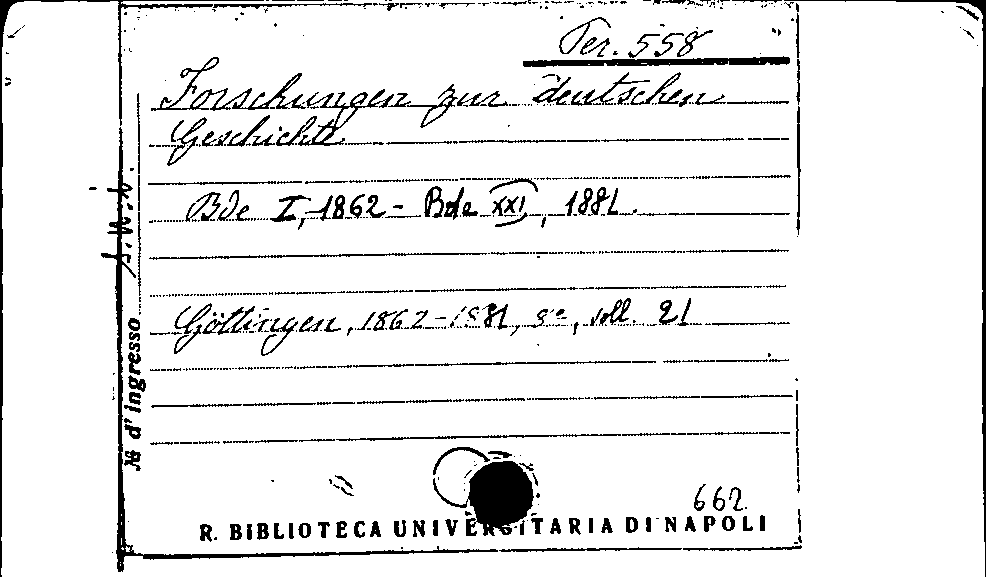 Per. 558
Forschungen zur deutschen
Geschichte
Bde I, 1862 - Bde XXI, 1881.
Göttingen, 1862-1881, 8º, voll. 21
№ d'ingresso
662
R. BIBLIOTECA UNIVERSITARIA DI NAPOLI